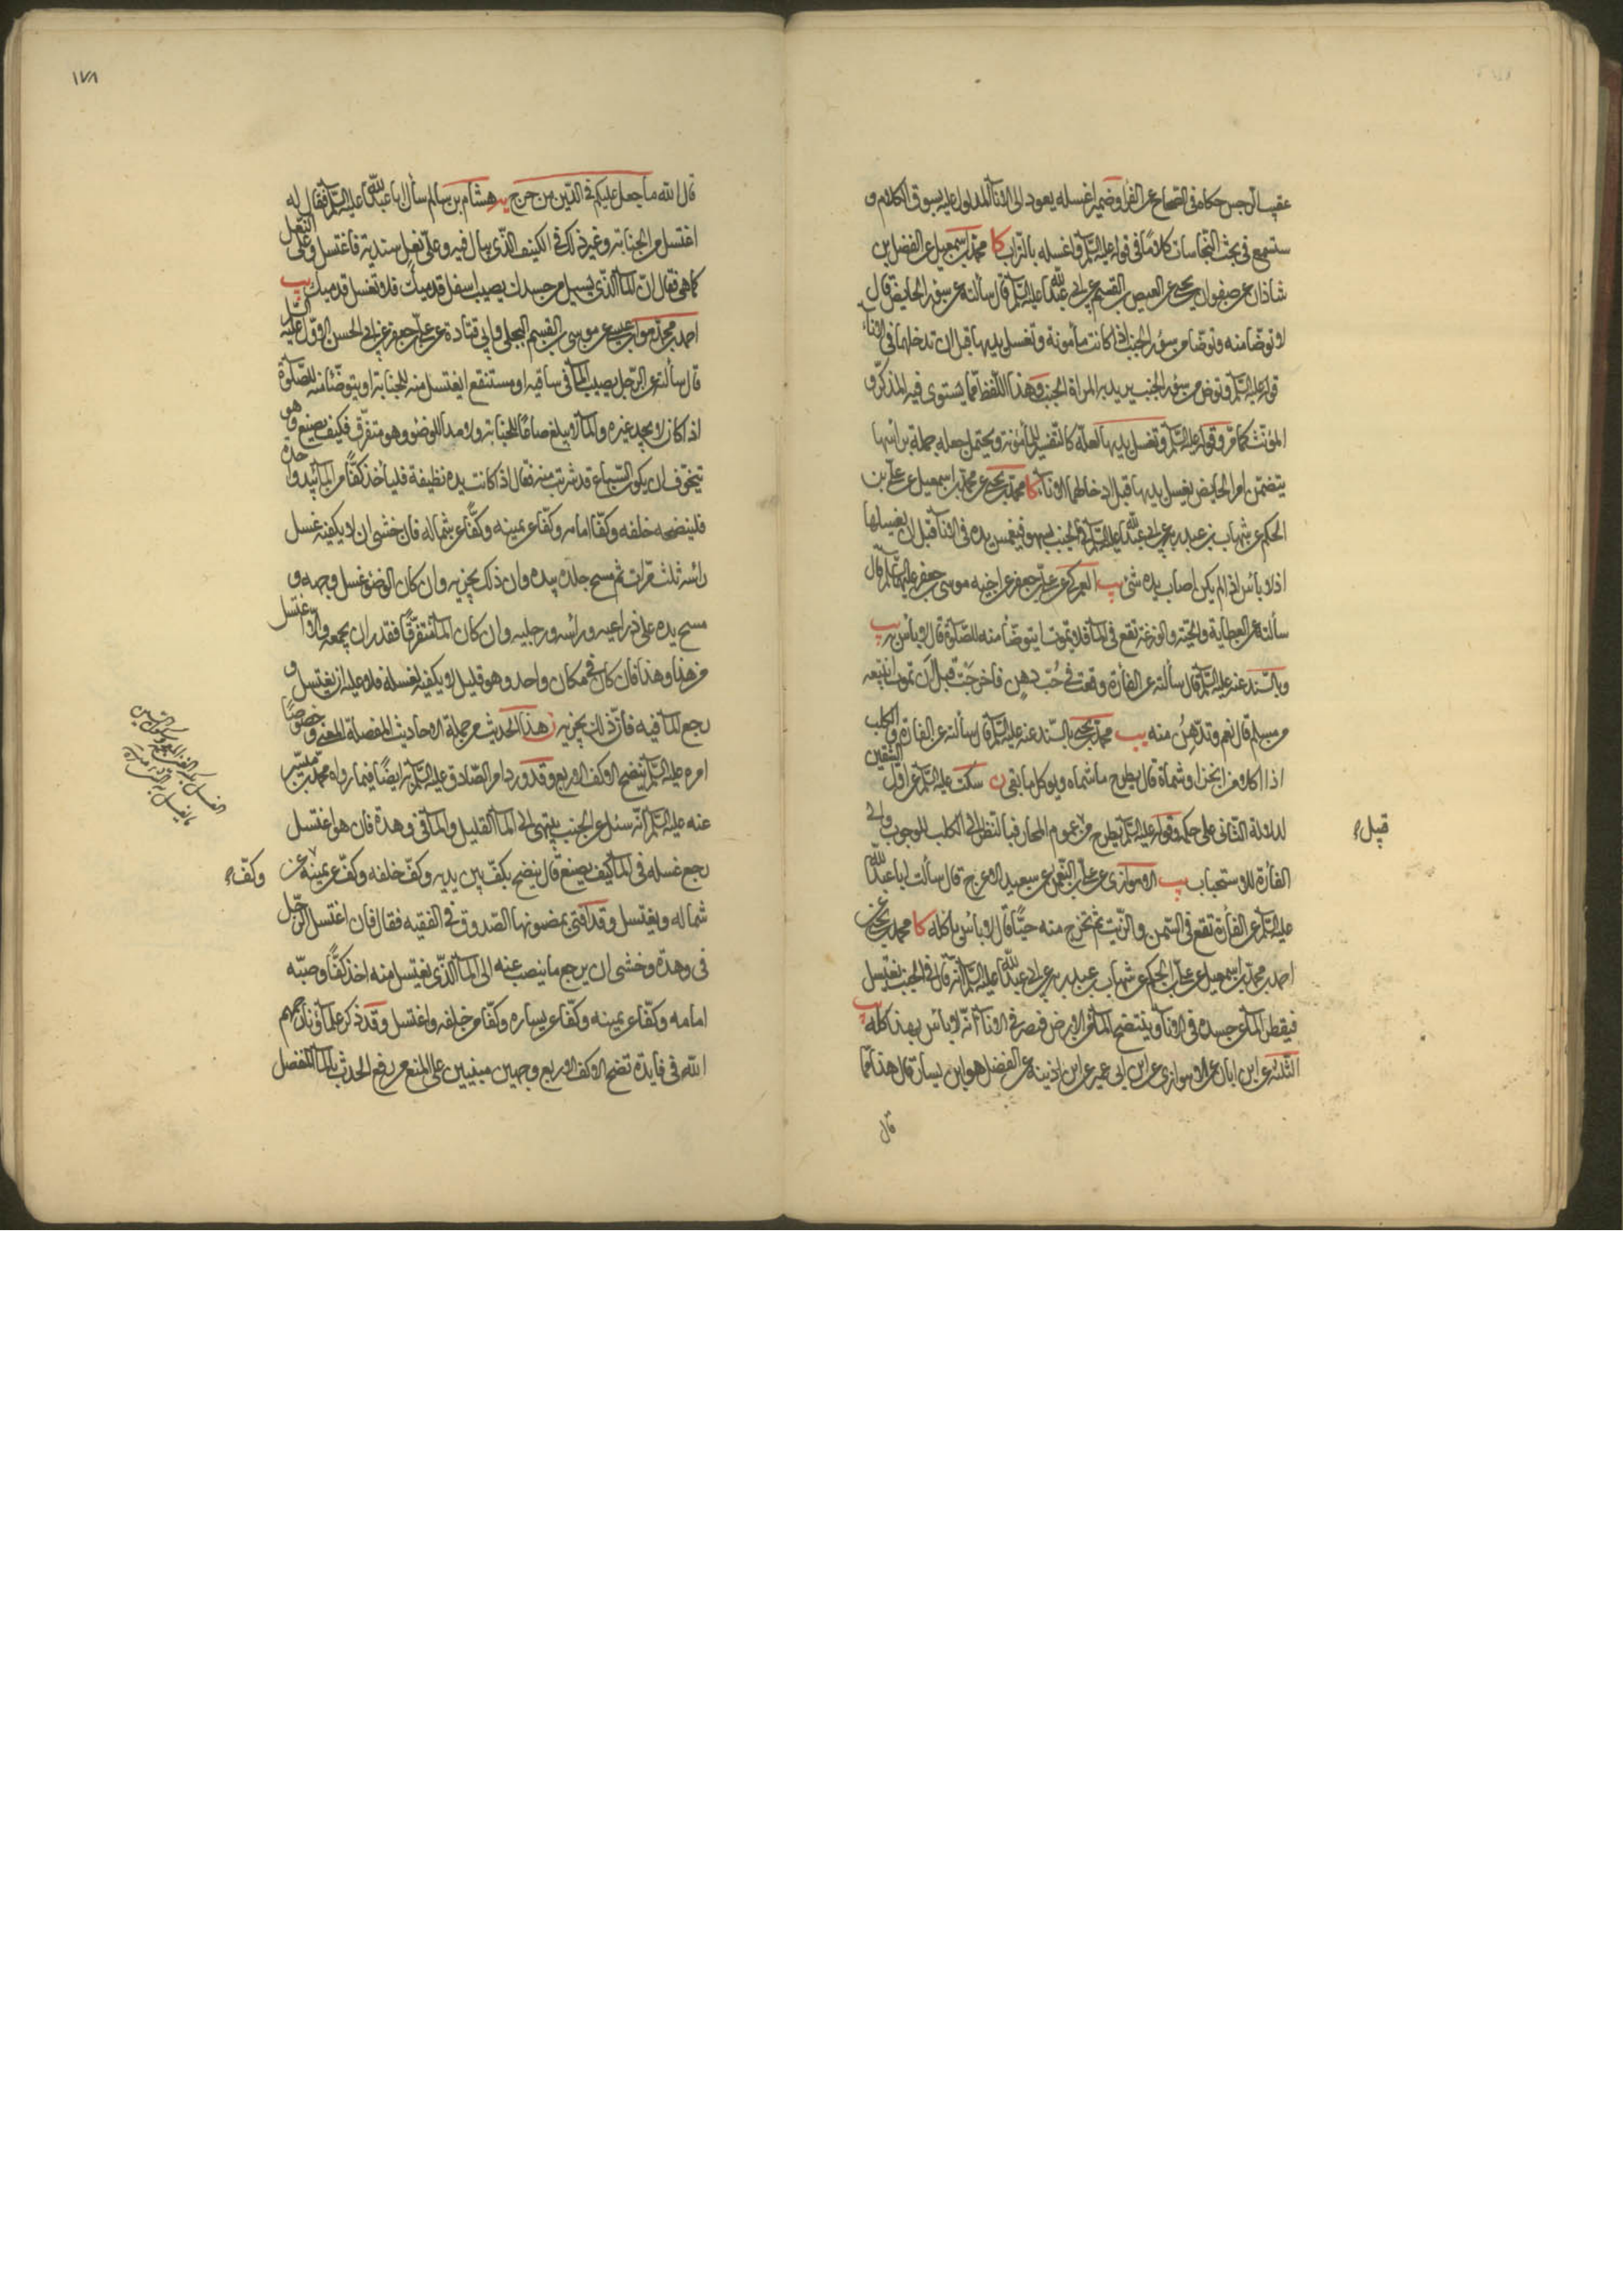 عقيب آل جس حكاه فى الصحاح عن الفرا وضمير اغسله يعود الى الاناء المدلول عليه بسوق الكلام و
ستسمع فى بحث النجاسات كلامًا فى قوله عليه السلم واغسله بالتراب كا محمد بن اسمعيل عن الفضل بن
شاذان عن صفوان بن يحيى عن العيص بن القسم عن ابى عبد الله عليه السلم قال سألته عن سؤر الحايض قال
لا توضأ منه وتوضأ من سؤر الجنب اذا كانت مأمونة وتغسل يديها قبل ان تدخلها فى الاناء
قوله عليه السلم وتوض من سؤر الجنب يريد به المراة الجنب وهذا اللفظ مما يستوى فيه المذكر و
المؤنث كما مر وقوله عليه السلم وتغسل يديها لعله كالتفسير للمأمونة ويحتمل جعله جملة براسها
يتضمن امر الحايض بغسل يديها قبل ادخالهما الاناء كا محمد بن يحيى عن محمد بن اسمعيل عن على بن
الحكم عن شهاب بن عبد ربه عن ابى عبد الله عليه السلم فى الجنب يسهو فيغمس يده فى الاناء قبل ان يغسلها
انه لا بأس اذا لم يكن اصاب يده شئ يب العمركى عن على بن جعفر عن اخيه موسى بن جعفر عليهما السلم قال
سألته عن العظاية والحية والوزغ تقع فى الماء فلا تموت ايتوضأ منه للصلوة قال لا بأس به يب
وبالسند عنه عليه السلم قال سألته عن الفارة وقعت فى حب دهن فاخرجت قبل ان تموت انبيعه
من مسلم قال نعم وتدهن منه يب محمد بن يحيى بالسند عنه عليه السلم قال سألته عن الفارة والكلب
اذا اكلا من الخبز او شماه قال يطرح ما شماه ويوكل ما بقى ن سكت عليه السلم عن اول الشقين
لدلالة الثانى على حكمه وقوله عليه السلم يطرح من عموم المجاز فبالنظر الى الكلب للوجوب والى
قيل
الفارة للاستحباب يب الاهوازى عن على بن النعمن عن سعيد الاعرج قال سألت ابا عبد الله
عليه السلم عن الفارة تقع فى السمن والزيت ثم تخرج منه حيًّا قال لا بأس باكله كا محمد بن يحيى عن
احمد بن محمد بن اسمعيل عن على بن الحكم عن شهاب بن عبد ربه عن ابى عبد الله عليه السلم انه قال فى الجنب يغتسل
فيقطر الماء عن جسده فى الاناء وينتضح الماء من الارض فيصير فى الاناء انه لا بأس بهذا كله يب
الثلثة عن ابن ابان عن الاهوازى عن ابن ابى عمير عن ابن اذينة عن الفضيل هو ابن يسار قال هذا مما
قال
١٧٨
قال الله ما جعل عليكم فى الدين من حرج يه هشام بن سالم سأل ابا عبد الله عليه السلم فقال له
اغتسل من الجنابة وغير ذلك فى الكنيف الذى يبال فيه وعلى نعل سندية فاغتسل وعلى النعل
كما هى فقال ان كان الماء الذى يسيل من جسدك يصيب اسفل قدميك فلا تغسل قدميك يب
احمد بن محمد عن موسى بن القسم البجلى وابى قتادة عن على بن جعفر عن ابى الحسن الاول عليه السلم
قال سألته عن الرجل يصيب الماء فى ساقية او مستنقع ايغتسل منه للجنابة او يتوضأ منه للصلوة
اذا كان لا يجد غيره والماء لا يبلغ صاعًا للجنابة ولا مدا للوضوء وهو متفرق فكيف يصنع وهو
يتخوف ان يكون السباع قد شربت منه فقال اذا كانت يده نظيفة فلياخذ كفًّا من الماء بيد واحدة
فلينضحه خلفه وكفًّا امامه وكفًّا عن يمينه وكفًّا عن شماله فان خشى ان لا يكفيه غسل
رأسه ثلث مرات ثم مسح جلده بيده وان ذلك يجزيه وان كان الوضوء غسل وجهه و
مسح يده على ذراعيه ورأسه ورجليه وان كان الماء متفرقًا فقدر ان يجمعه والا اغتسل
من هذا وهذا فان كان فى مكان واحد وهو قليل لا يكفيه لغسله فلا عليه ان يغتسل و
يرجع الماء فيه فان ذلك يجزيه ن هذا الحديث من جملة الاحاديث المعضلة المعنى وخصوصًا
امره عليه السلم بنضح الاكف الاربع وقد ورد امر الصادق عليه السلم به ايضًا فيما رواه محمد بن ميسر
عنه عليه السلم انه سئل عن الجنب ينتهى الى الماء القليل والماء فى وهدة فان هو اغتسل
رجع غسله فى الماء كيف يصنع قال ينضح بكف بين يديه وكف خلفه وكف عن يمينه وكف عن
شماله ويغتسل وقد افتى بمضمونها الصدوق فى الفقيه فقال فان اغتسل الرجل
فى وهدة وخشى ان يرجع ما ينصب عنه الى الماء الذى يغتسل منه اخذ كفًّا وصبه
امامه وكفًّا عن يمينه وكفًّا عن يساره وكفًّا من خلفه واغتسل وقد ذكر علماؤنا رحمهم
الله فى فايدة نضح الاكف الاربع وجهين مبنيين على المنع من رفع الحدث بالماء المنفصل